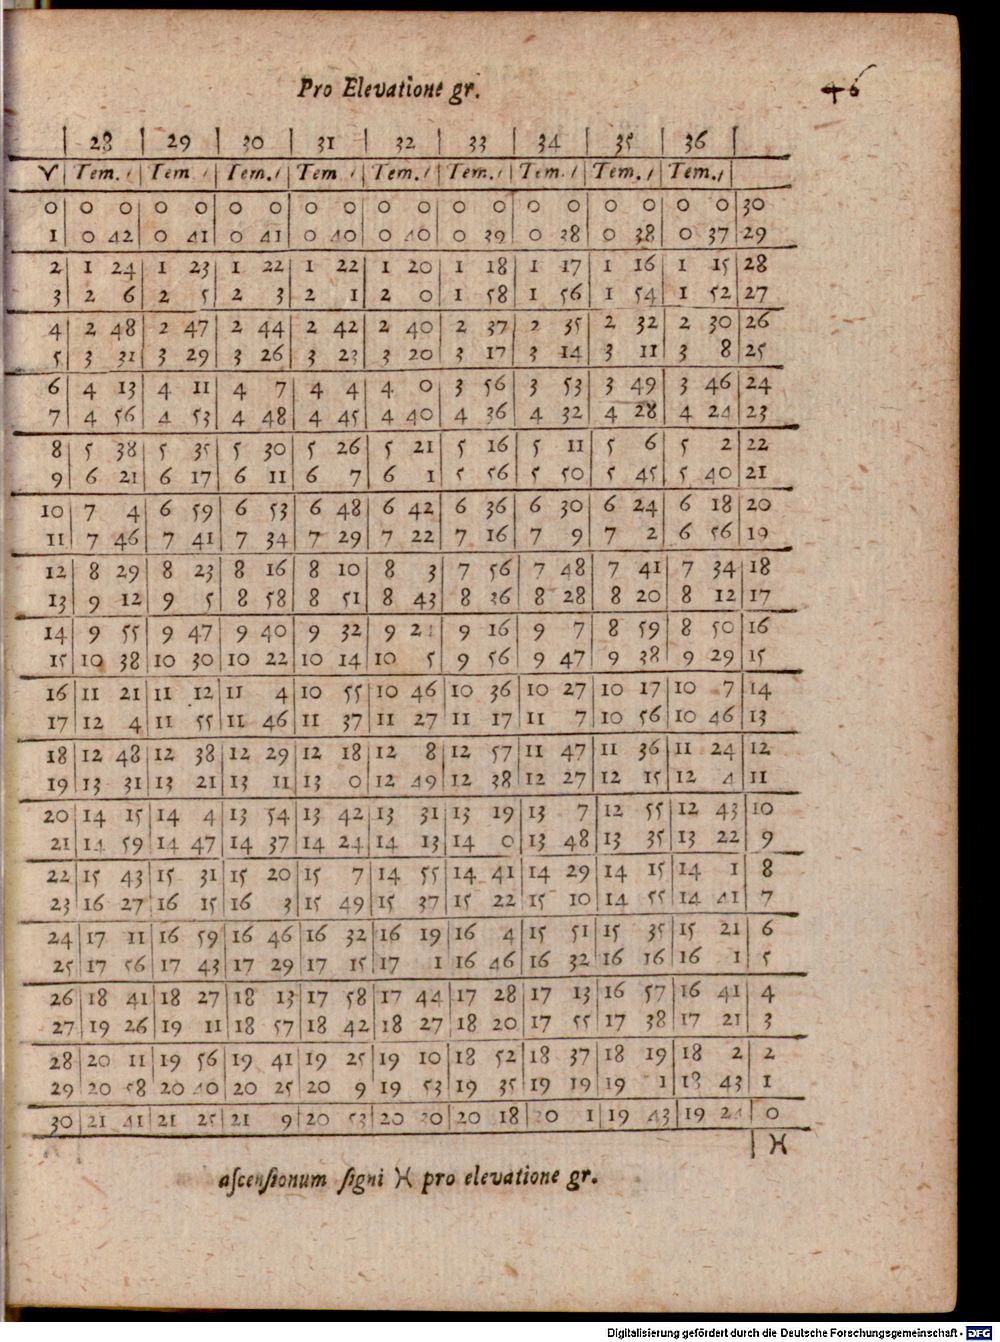 Pro Elevatione gr. 46
28 29 30 31 32 33 34 35 36
♈ Tem. ′ Tem ′ Tem. ′ Tem ′ Tem. ′ Tem. ′ Tem. ′ Tem. ′ Tem. ′
0 0 0 0 0 0 0 0 0 0 0 0 0 0 0 0 0 0 0 30
1 0 42 0 41 0 41 0 40 0 40 0 39 0 38 0 38 0 37 29
2 1 24 1 23 1 22 1 22 1 20 1 18 1 17 1 16 1 15 28
3 2 6 2 5 2 3 2 1 2 0 1 58 1 56 1 54 1 52 27
4 2 48 2 47 2 44 2 42 2 40 2 37 2 35 2 32 2 30 26
5 3 31 3 29 3 26 3 23 3 20 3 17 3 14 3 11 3 8 25
6 4 13 4 11 4 7 4 4 4 0 3 56 3 53 3 49 3 46 24
7 4 56 4 53 4 48 4 45 4 40 4 36 4 32 4 28 4 24 23
8 5 38 5 35 5 30 5 26 5 21 5 16 5 11 5 6 5 2 22
9 6 21 6 17 6 11 6 7 6 1 5 56 5 50 5 45 5 40 21
10 7 4 6 59 6 53 6 48 6 42 6 36 6 30 6 24 6 18 20
11 7 46 7 41 7 34 7 29 7 22 7 16 7 9 7 2 6 56 19
12 8 29 8 23 8 16 8 10 8 3 7 56 7 48 7 41 7 34 18
13 9 12 9 5 8 58 8 51 8 43 8 36 8 28 8 20 8 12 17
14 9 55 9 47 9 40 9 32 9 9 16 9 7 8 59 8 50 16
15 10 38 10 30 10 22 10 14 10 5 9 56 9 47 9 38 9 29 15
16 11 21 11 12 11 4 10 55 10 46 10 36 10 27 10 17 10 7 14
17 12 4 11 55 11 46 11 37 11 27 11 17 11 7 10 56 10 46 13
18 12 48 12 38 12 29 12 18 12 8 12 57 11 47 11 36 11 24 12
19 13 31 13 21 13 11 13 0 12 49 12 38 12 27 12 15 12 4 11
20 14 15 14 4 13 54 13 42 13 31 13 19 13 7 12 55 12 43 10
21 14 59 14 47 14 37 14 24 14 13 14 0 13 48 13 35 13 22 9
22 15 43 15 31 15 20 15 7 14 55 14 41 14 29 14 15 14 1 8
23 16 27 16 15 16 3 15 49 15 37 15 22 15 10 14 55 14 41 7
24 17 11 16 59 16 46 16 32 16 19 16 4 15 51 15 35 15 21 6
25 17 56 17 43 17 29 17 15 17 1 16 46 16 32 16 16 16 1 5
26 18 41 18 27 18 13 17 58 17 44 17 28 17 13 16 57 16 41 4
27 19 26 19 11 18 57 18 42 18 27 18 20 17 55 17 38 17 21 3
28 20 11 19 56 19 41 19 25 19 10 18 52 18 37 18 19 18 2 2
29 20 58 20 40 20 25 20 9 19 53 19 35 19 19 19 1 18 43 1
30 21 41 21 25 21 9 20 53 20 20 20 18 20 1 19 43 19 24 0
♓
ascensionum signi ♓ pro elevatione gr.
Digitalisierung gefördert durch die Deutsche Forschungsgemeinschaft - DFG